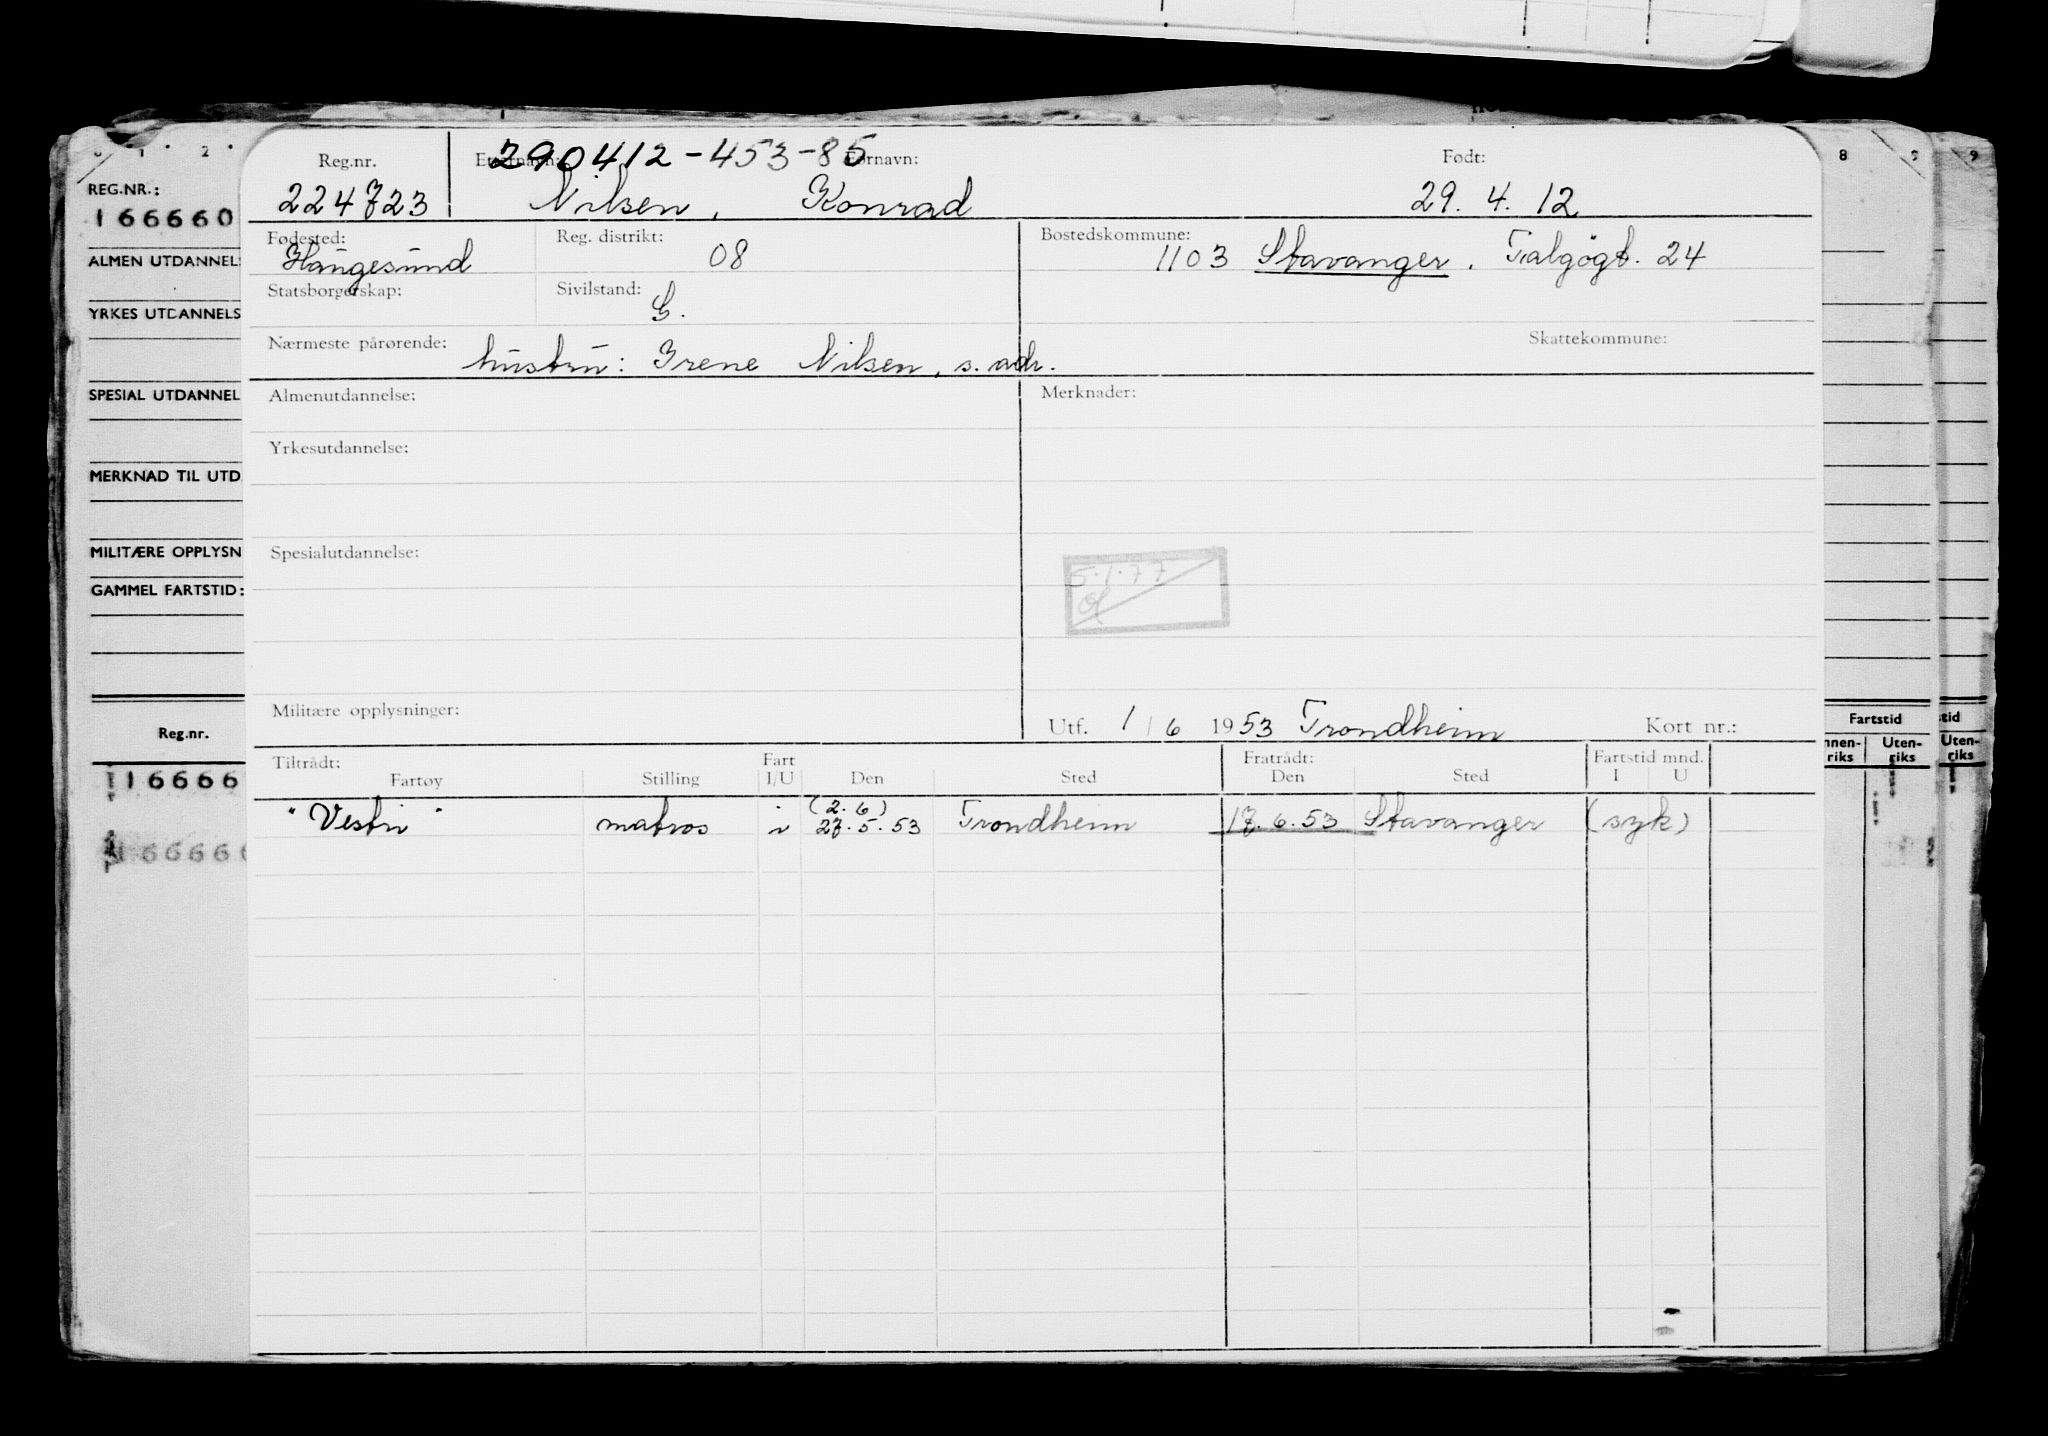 REG.NR.:
166660
ALMEN UTDANNEL
YRKES UTDANNELS
SPESIAL UTDANNEL
MERKNAD TIL UTD
MILITÆRE OPPLYSN
GAMMEL FARTSTID:
Reg.nr.
16666
Reg.nr. Etternavn: 290412-453-85 Fornavn: Født:
224723 Nilsen, Konrad 29. 4. 12
Fødested: Reg. distrikt: Bostedskommune:
Haugesund 08 1103 Stavanger. Talgøgt. 24
Statsborgerskap: Sivilstand:
G.
Nærmeste pårørende: Skattekommune:
hustru: Irene Nilsen, s. adr.
Almenutdannelse: Merknader:
Yrkesutdannelse:
Spesialutdannelse:
5.1.77
Militære opplysninger: Utf. 1/6 1953 Trondheim Kort nr.:
Tiltrådt: Fart Fratrådt: Fartstid mnd.
Fartøy Stilling I/U Den Sted Den Sted I U
(2.6)
"Vestri" matros i 27.5.53 Trondheim 17.6.53 Stavanger (syk)
8 9 9
Fartstid
nnen-riks Uten-riks
tid
Uten-riks